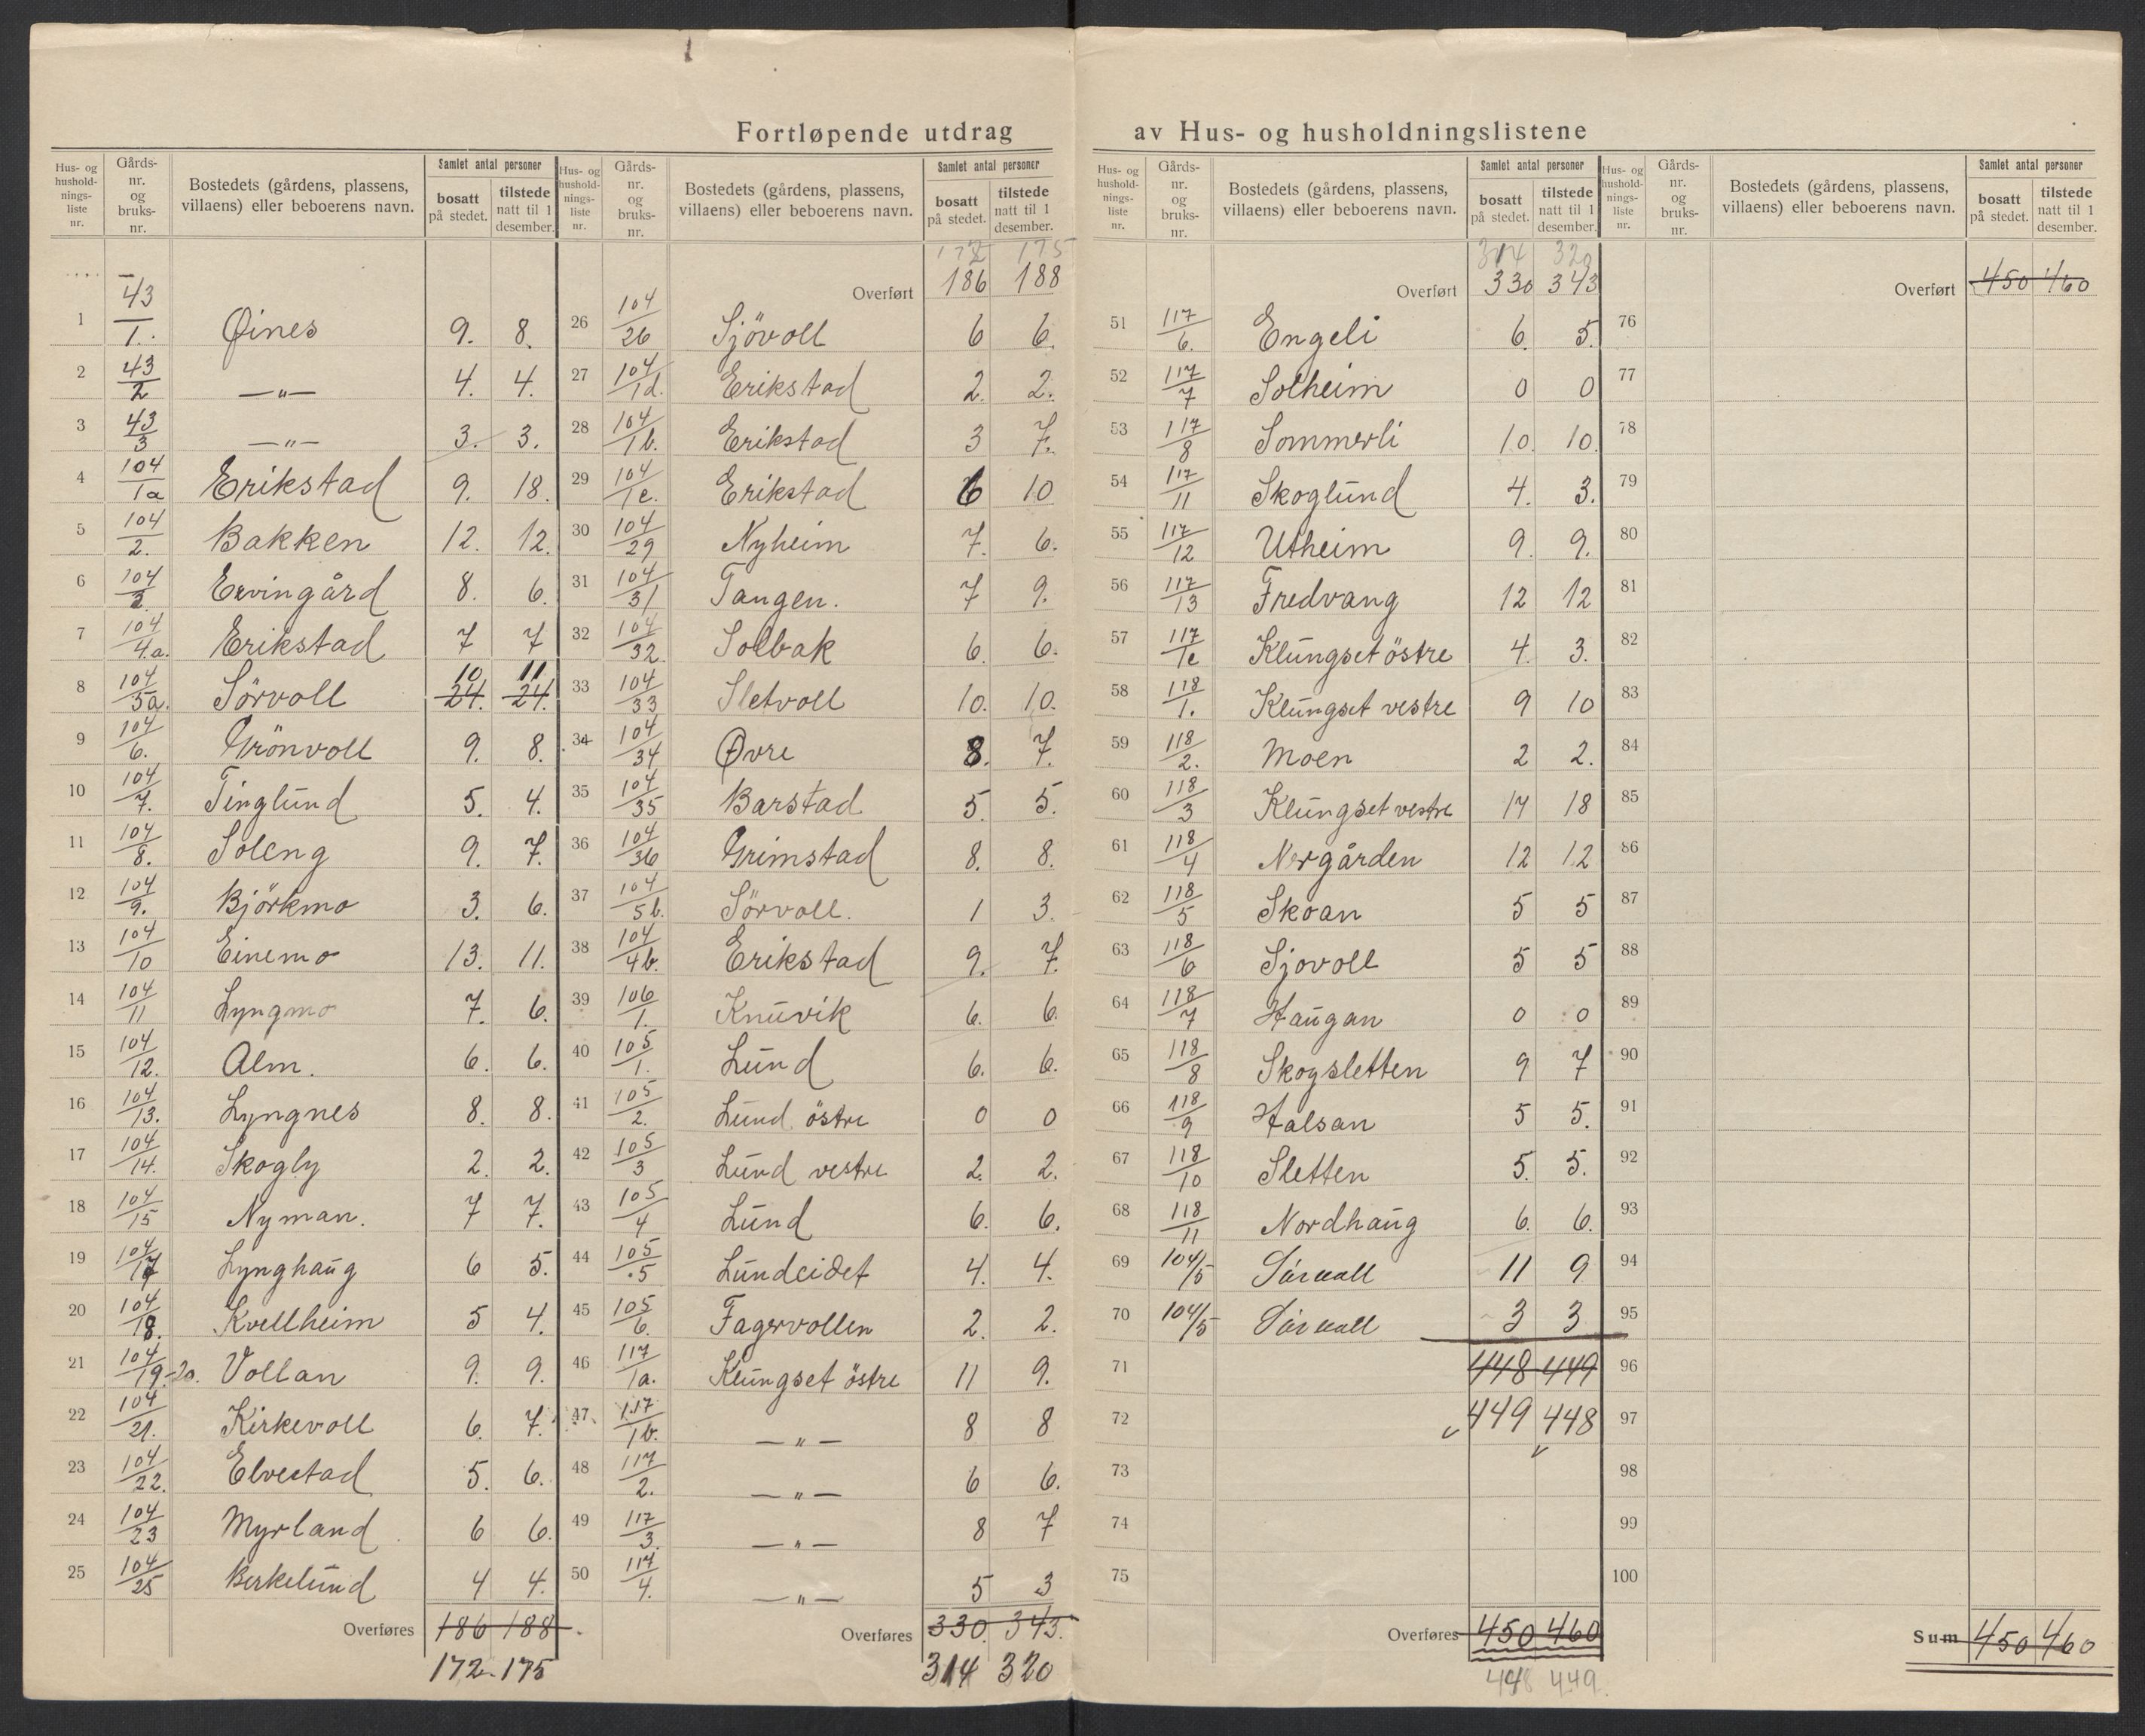 Fortløpende utdrag av Hus- og husholdningslistene
Hus- og husholdningsliste nr. | Gårds- nr. og bruks- nr. | Bostedets (gårdens, plassens, villaens) eller beboerens navn. | Samlet antal personer bosatt på stedet. | tilstede natt til 1 desember.
1 43/1. Øines 9. 8.
2 43/2 —„— 4. 4.
3 43/3 —„— 3. 3.
4 104/1a Erikstad 9. 18.
5 104/2. Bakken 12. 12.
6 104/3 Ervingård 8. 6.
7 104/4.a. Erikstad 7 7
8 104/5a. Sörvoll 10 11 24. 24.
9 104/6. Grönvoll 9. 8.
10 104/7. Tinglund 5. 4.
11 104/8. Soleng 9. 7.
12 104/9. Björkmo 3. 6.
13 104/10 Einemo 13. 11.
14 104/11 Lyngmo 7. 6.
15 104/12. Alm. 6. 6.
16 104/13. Lyngnes 8. 8.
17 104/14. Skogly 2. 2.
18 104/15 Nyman. 7 7.
19 104/17 Lynghaug 6 5.
20 104/18. Kvellheim 5 4.
21 104/19-20. Vollan 9. 9.
22 104/21. Kirkevoll 6. 7.
23 104/22. Elvestad 5. 6.
24 104/23 Myrland 6 6.
25 104/25 Berkelund 4 4.
Overføres 186 188
172 175
Hus- og husholdningsliste nr. | Gårds- nr. og bruks- nr. | Bostedets (gårdens, plassens, villaens) eller beboerens navn. | Samlet antal personer bosatt på stedet. | tilstede natt til 1 desember.
172 175
Overført 186 188
26 104/26 Sjövoll 6 6.
27 104/1d. Erikstad 2. 2.
28 104/1b. Erikstad 3 7.
29 104/1c. Erikstad 6 10
30 104/29 Nyheim 7. 6.
31 104/31 Tangen. 7 9.
32 104/32. Solbak 6. 6.
33 104/33 Sletvoll 10. 10.
34 104/34 Øvre 8. 7.
35 104/35 Barstad 5. 5.
36 104/36 Grimstad 8. 8.
37 104/5b. Sörvoll. 1 3.
38 104/4b. Erikstad 9. 7.
39 106/1. Knuvik 6. 6.
40 105/1. Lund 6. 6.
41 105/2. Lund östre 0 0
42 105/3 Lund vestre 2. 2.
43 105/4 Lund 6. 6.
44 105/5 Lundeidet 4. 4.
45 105/6. Fagervollen 2. 2.
46 117/1a. Klungset östre 11 9.
47 117/1b. —„— 8 8
48 117/2. —„— 6 6.
49 117/3. —„— 8 7
50 117/4. —„— 5 3
Overføres 330. 343.
314 320
Hus- og husholdningsliste nr. | Gårds- nr. og bruks- nr. | Bostedets (gårdens, plassens, villaens) eller beboerens navn. | Samlet antal personer bosatt på stedet. | tilstede natt til 1 desember.
314 320
Overført 330 343
51 117/6. Engeli 6. 5.
52 117/7 Solheim 0 0
53 117/8 Sommerli 10. 10.
54 117/11 Skoglund 4. 3.
55 117/12 Utheim 9. 9.
56 117/13 Fredvang 12 12
57 117/1c Klungset östre 4. 3.
58 118/1. Klungset vestre 9 10
59 118/2. Moen 2 2.
60 118/3 Klungset vestre 17 18
61 118/4 Nergården 12 12
62 118/5 Skoan 5 5
63 118/6 Sjovoll 5 5
64 118/7 Haugan 0 0
65 118/8 Skogsletten 9 7
66 118/9 Halsan 5 5.
67 118/10 Sletten 5. 5.
68 118/11 Nordhaug 6. 6.
69 104/5 Sörvoll 11 9
70 104/5 Sörvoll 3 3
71 448 449
72 449 448
73
74
75
Overføres 450 460
448 449.
Hus- og husholdningsliste nr. | Gårds- nr. og bruks- nr. | Bostedets (gårdens, plassens, villaens) eller beboerens navn. | Samlet antal personer bosatt på stedet. | tilstede natt til 1 desember.
Overført 450 460
76
77
78
79
80
81
82
83
84
85
86
87
88
89
90
91
92
93
94
95
96
97
98
99
100
Sum 450 460